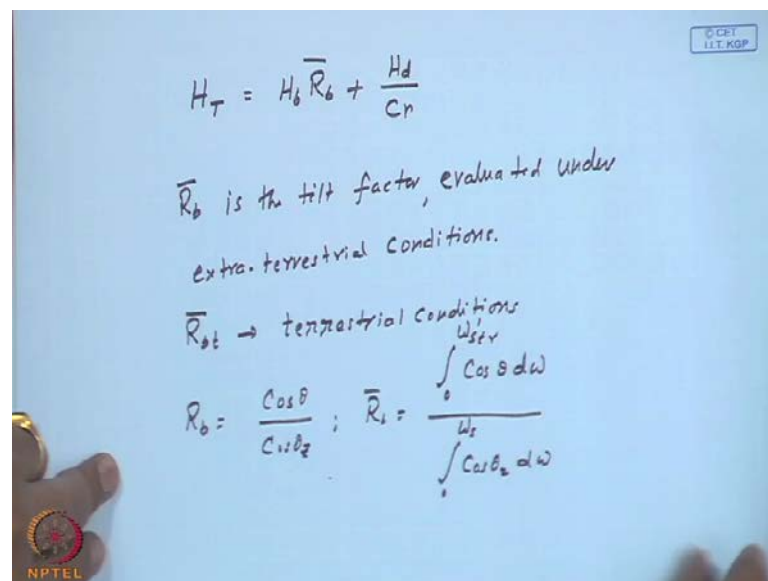 © CET
I.I.T. KGP
H_T = H_b R̅_b + Hd/Cr
R̅_b is the tilt factor, evaluated under
extra-terrestrial conditions.
R̅_bt → terrestrial conditions
R_b = Cosθ/Cosθ_z ; R̅_b = ∫_0^{ω'_str} Cosθ dω / ∫_0^{ω_s} Cosθ_z dω
NPTEL